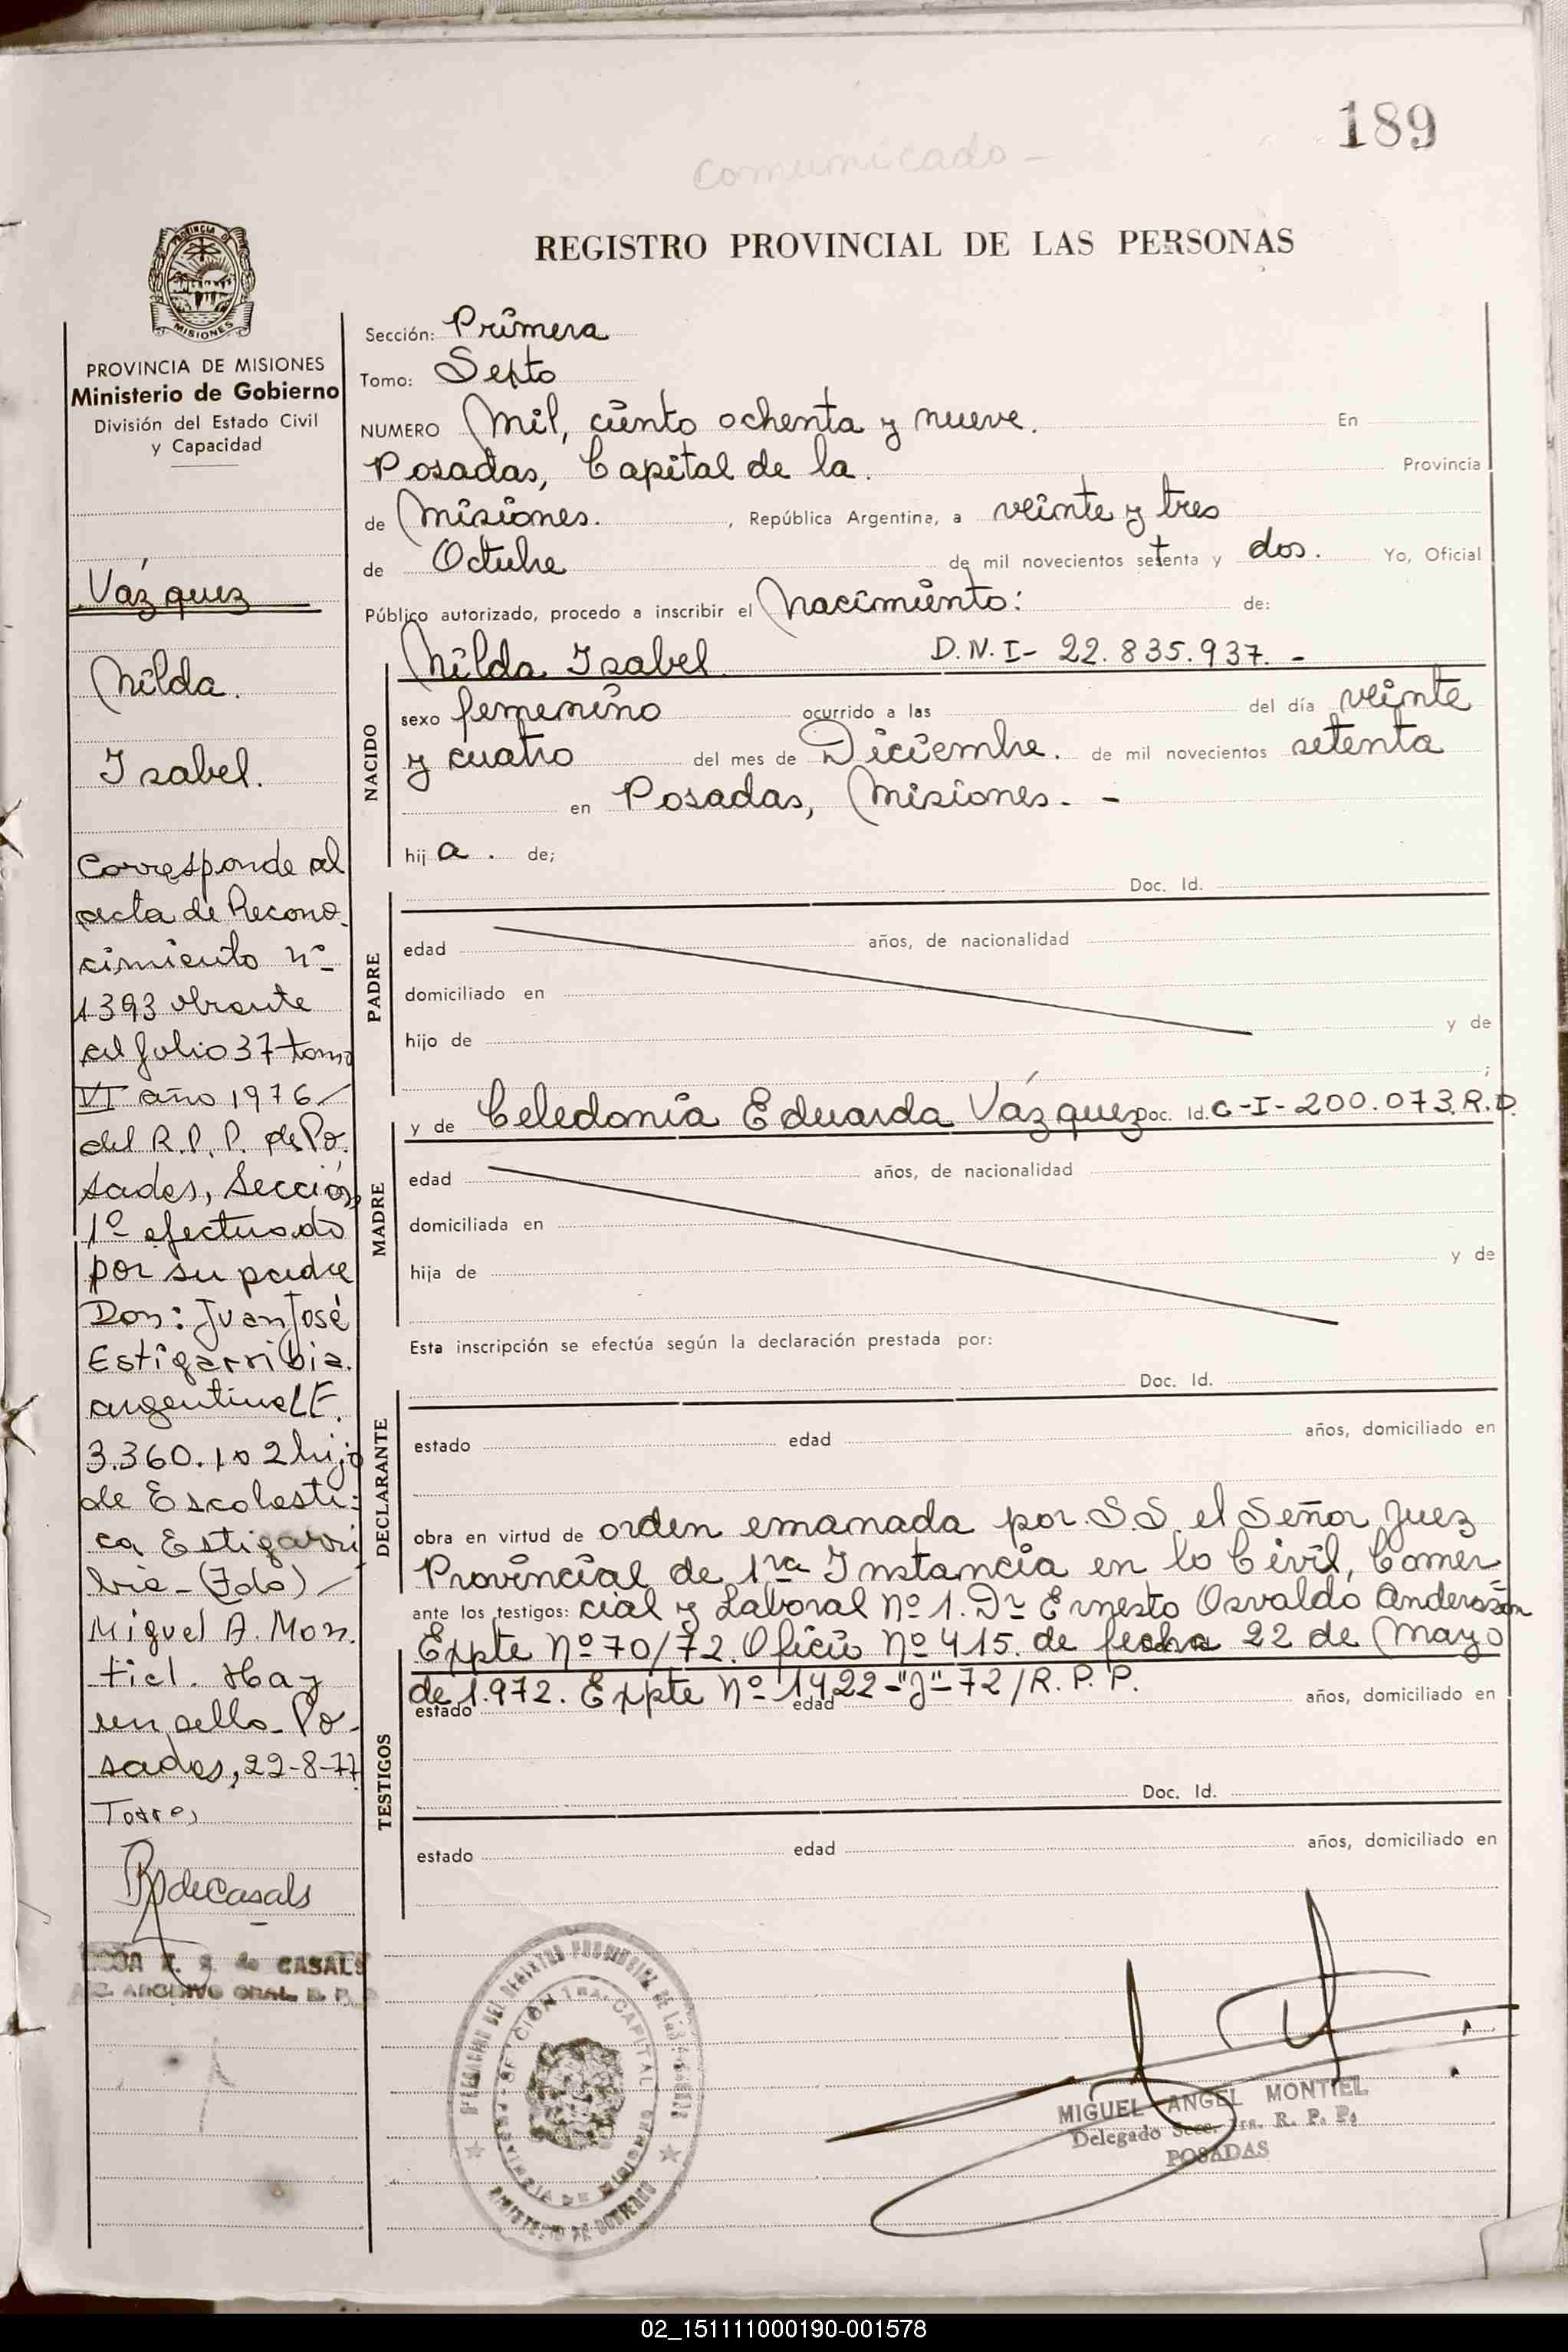 189
comunicado -
REGISTRO PROVINCIAL DE LAS PERSONAS
PROVINCIA DE MISIONES
Ministerio de Gobierno
División del Estado Civil
y Capacidad
Vázquez
Nilda.
Isabel.
Corresponde al
acta de Recono-
cimiento nº
1393 obrante
al folio 37 tomo
VI año 1976-
del R.P.P. de Po-
sadas, Sección
1º efectuado
por su padre
Don: Juan José
Estigarribia.
argentino L.E.
3.360.102 hijo
de Escolásti-
ca Estigarri
bia-(Fdo)-
Miguel A. Mon-
tiel. Hay
un sello- Po-
sadas, 22-8-77
Torres
RdeCasals
de CASALS
ARCHIVO GRAL. R. P.
Sección: Primera
Tomo: Sexto
NUMERO Mil, ciento ochenta y nueve. En
Posadas, Capital de la. Provincia
de Misiones. , República Argentina, a veinte y tres
de Octubre de mil novecientos setenta y dos. Yo, Oficial
Público autorizado, procedo a inscribir el Nacimiento: de:
NACIDO
Nilda Isabel D.N.I- 22.835.937.-
sexo femenino ocurrido a las del día veinte
y cuatro del mes de Diciembre. de mil novecientos setenta
en Posadas, Misiones.-
hij a. de;
Doc. Id.
PADRE
edad años, de nacionalidad
domiciliado en
hijo de y de
;
MADRE
y de Celedonia Eduarda Vázquez Doc. Id. C-I-200.073.R.P.
edad años, de nacionalidad
domiciliada en
hija de y de
Esta inscripción se efectúa según la declaración prestada por:
Doc. Id.
DECLARANTE
estado edad años, domiciliado en
obra en virtud de orden emanada por S.S. el Señor Juez
Provincial de 1ra Instancia en lo Civil, Comer
ante los testigos: cial y Laboral Nº 1. Dr Ernesto Osvaldo Anderson
Expte Nº 70/72. Oficio Nº 415. de fecha 22 de Mayo
de 1.972. Expte Nº 1422-"J"-72/R.P.P.
TESTIGOS
estado edad años, domiciliado en
Doc. Id.
estado edad años, domiciliado en
SECCION 1RA. CAPITAL
MINISTERIO DE GOBIERNO
MIGUEL ANGEL MONTIEL
Delegado Secc. 1ra. R. P. P.
POSADAS
02_151111000190-001578